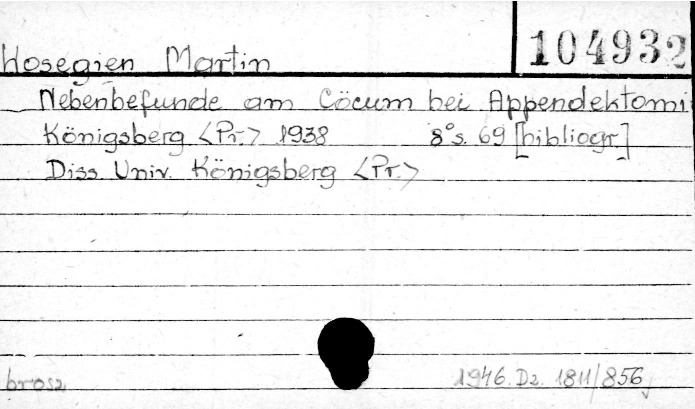 104932
Hosegien Martin
Nebenbefunde am Cöcum bei Appendektomi
Königsberg <Pr.> 1938 8° s. 69 [bibliogr.]
Diss. Univ. Königsberg <Pr.>
brosz 1946. Dz. 1811/856